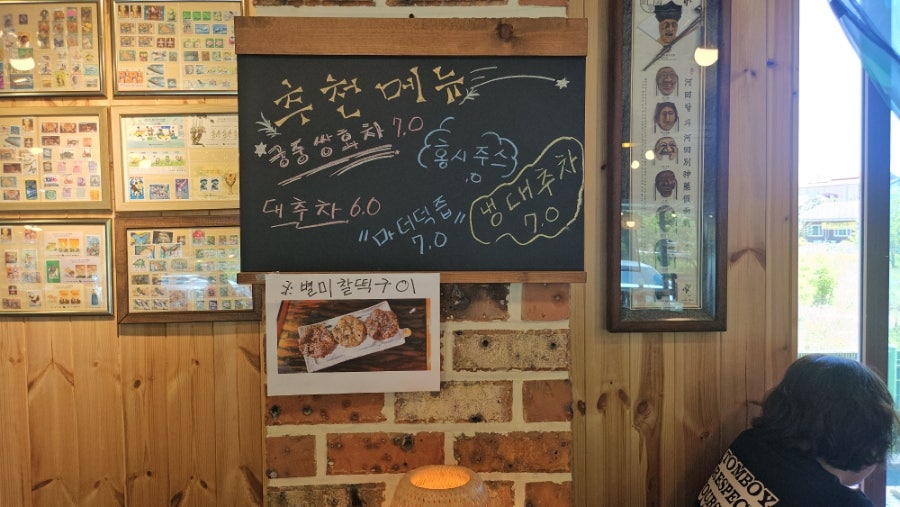 추천메뉴
*궁중쌍화차 7.0
홍시주스
.0
대추차 6.0
"마더덕즙"
7.0
냉대추차
7.0
※별미찰떡구이
TOMBOY
RESPECT